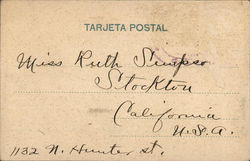 TARJETA POSTAL
Miss Ruth Simpso
Stockton
California
U.S.A.
1132 N. Hunter st.